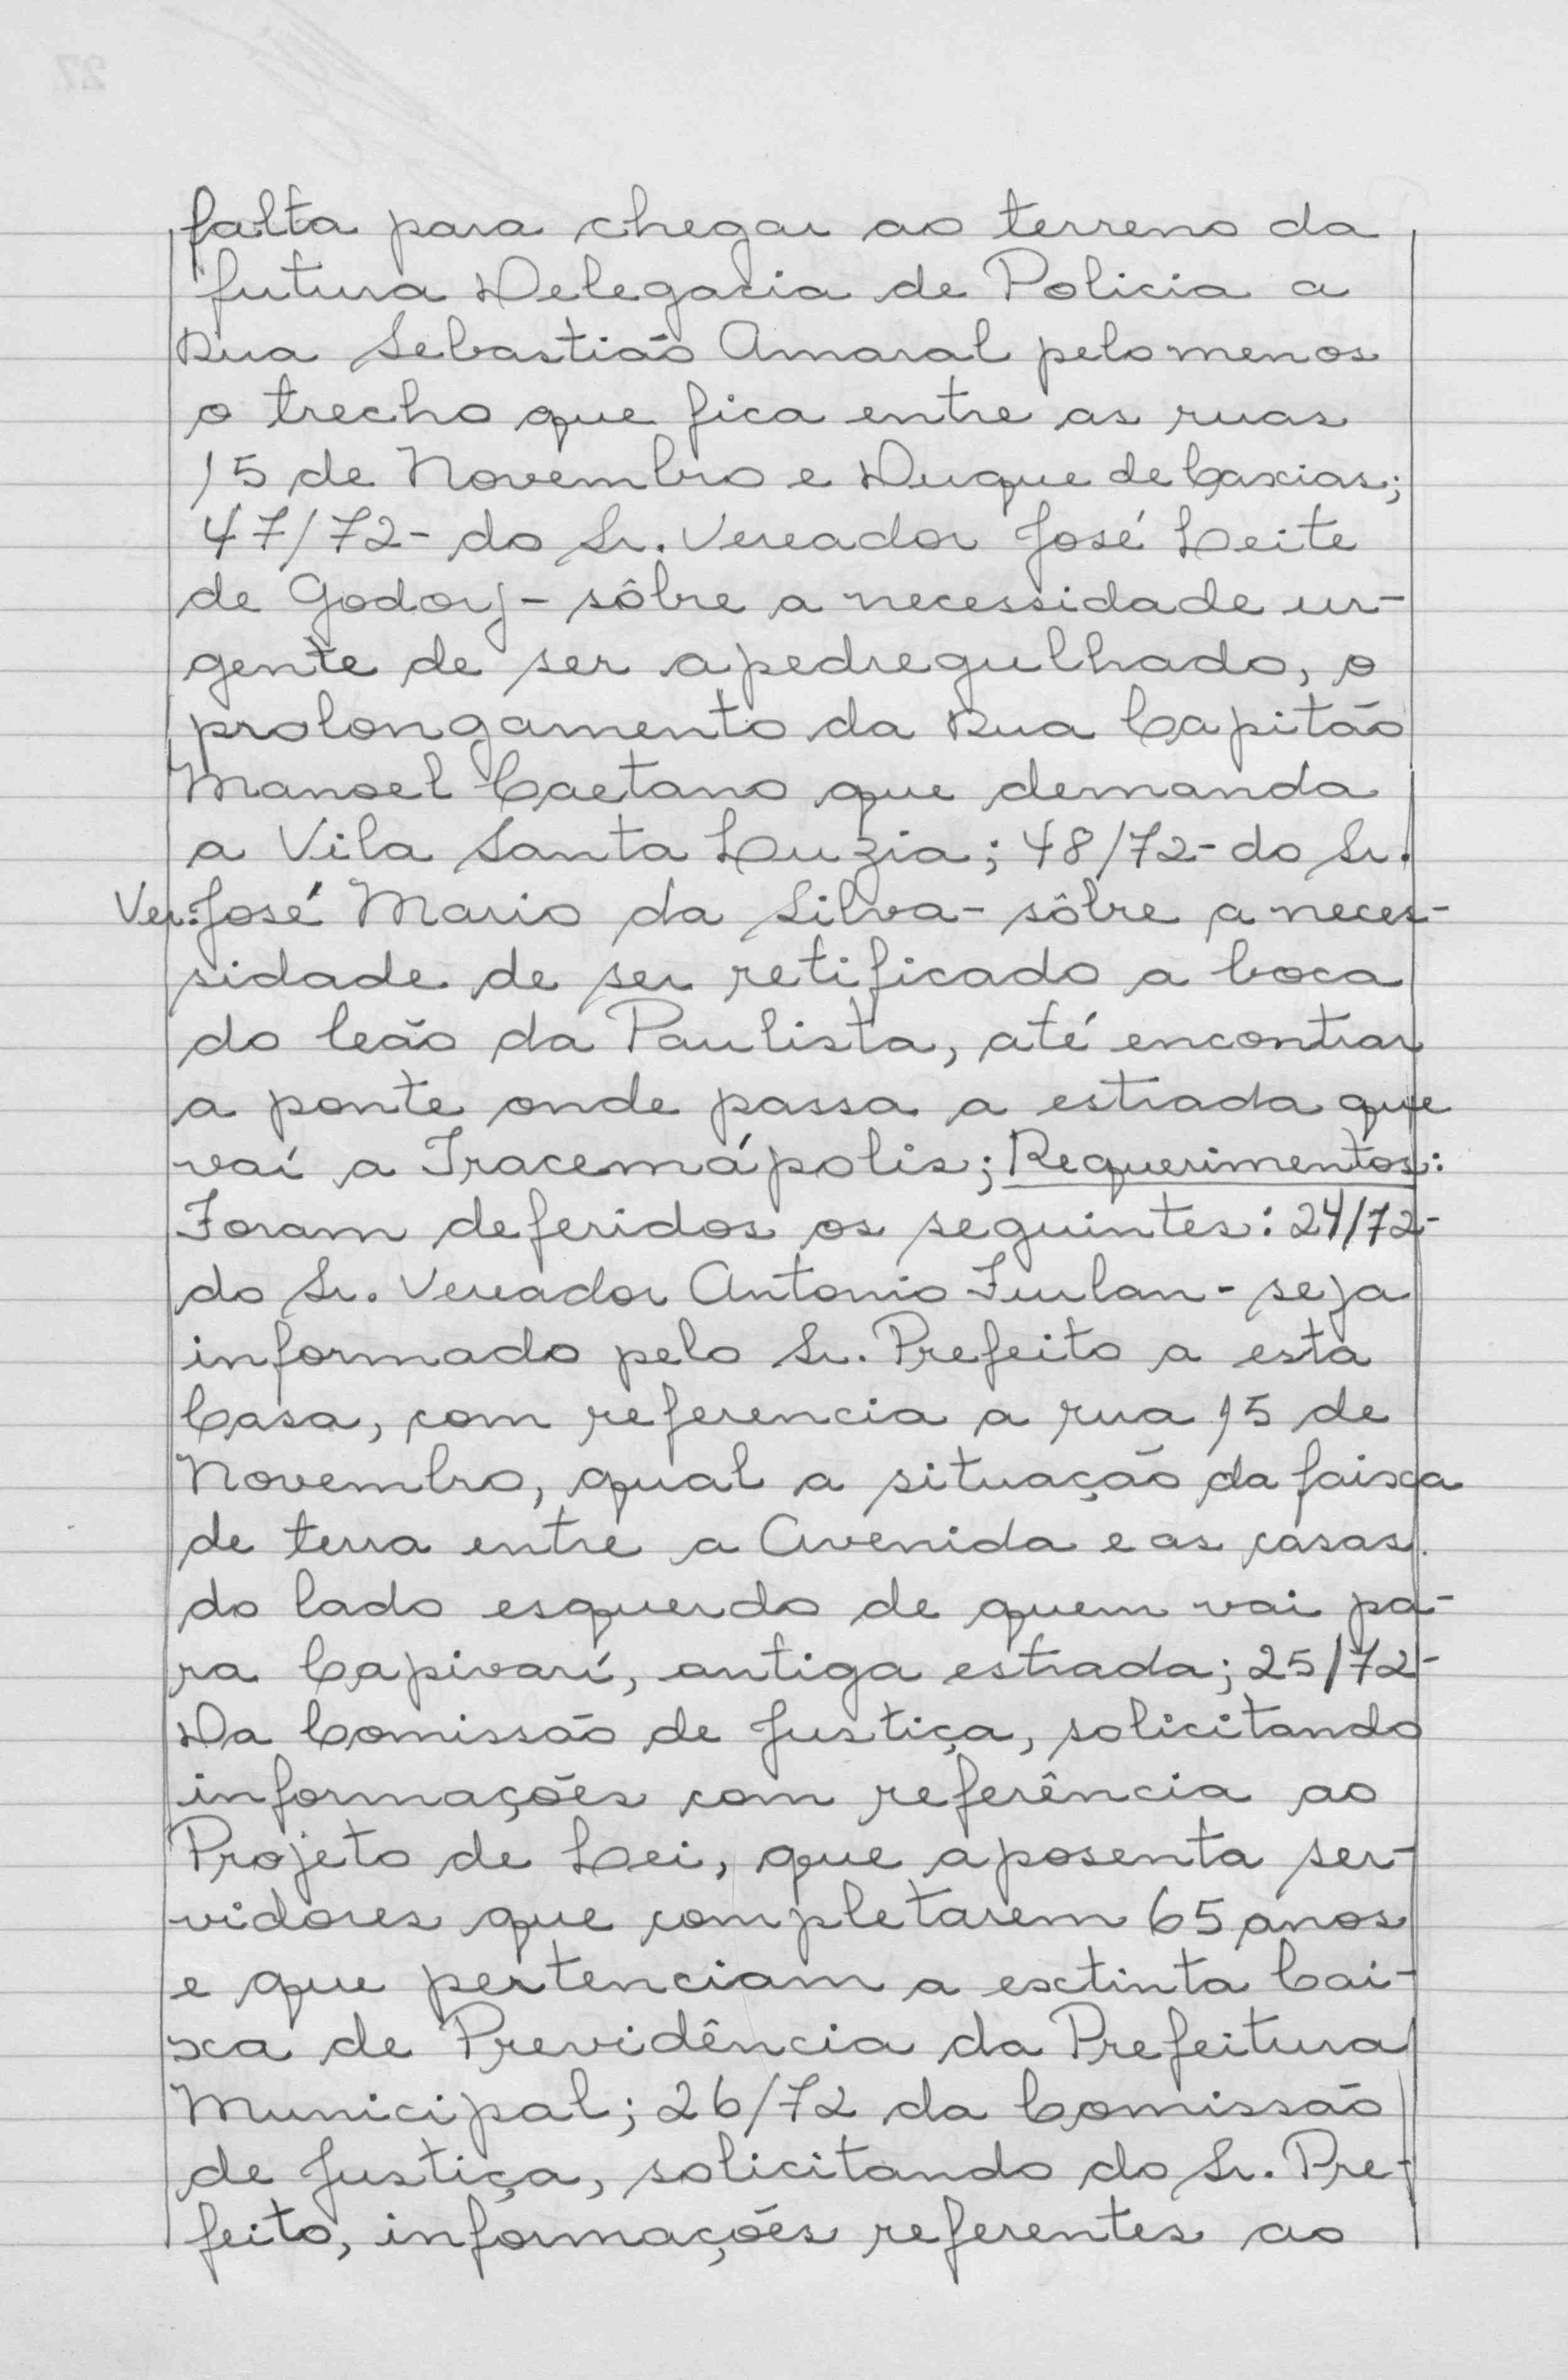 falta para chegar ao terreno da
futura Delegacia de Policia a
Rua Sebastião Amaral pelo menos
o trecho que fica entre as ruas
15 de Novembro e Duque de Caxias;
47/72- do Sr. Vereador José Leite
de Godoy - sôbre a necessidade ur-
gente de ser apedregulhado, o
prolongamento da Rua Capitão
Manoel Caetano que demanda
a Vila Santa Luzia; 48/72- do Sr.
Ver: José Mario da Silva - sôbre a neces-
sidade de ser retificado a boca
do leão da Paulista, até encontrar
a ponte onde passa a estrada que
vaí a Iracemápolis; Requerimentos:
Foram deferidos os seguintes: 24/72-
do Sr. Vereador Antonio Furlan - seja
informado pelo Sr. Prefeito a esta
Casa, com referencia a rua 15 de
Novembro, qual a situação da faixa
de terra entre a Avenida e as casas
do lado esquerdo de quem vai pa-
ra Capivarí, antiga estrada; 25/72-
Da Comissão de Justiça, solicitando
informações com referência ao
Projeto de Lei, que aposenta ser-
vidores que completarem 65 anos
e que pertenciam a extinta Cai-
xa de Previdência da Prefeitura
Municipal; 26/72 da Comissão
de Justiça, solicitando do Sr. Pre-
feito, informações referentes ao